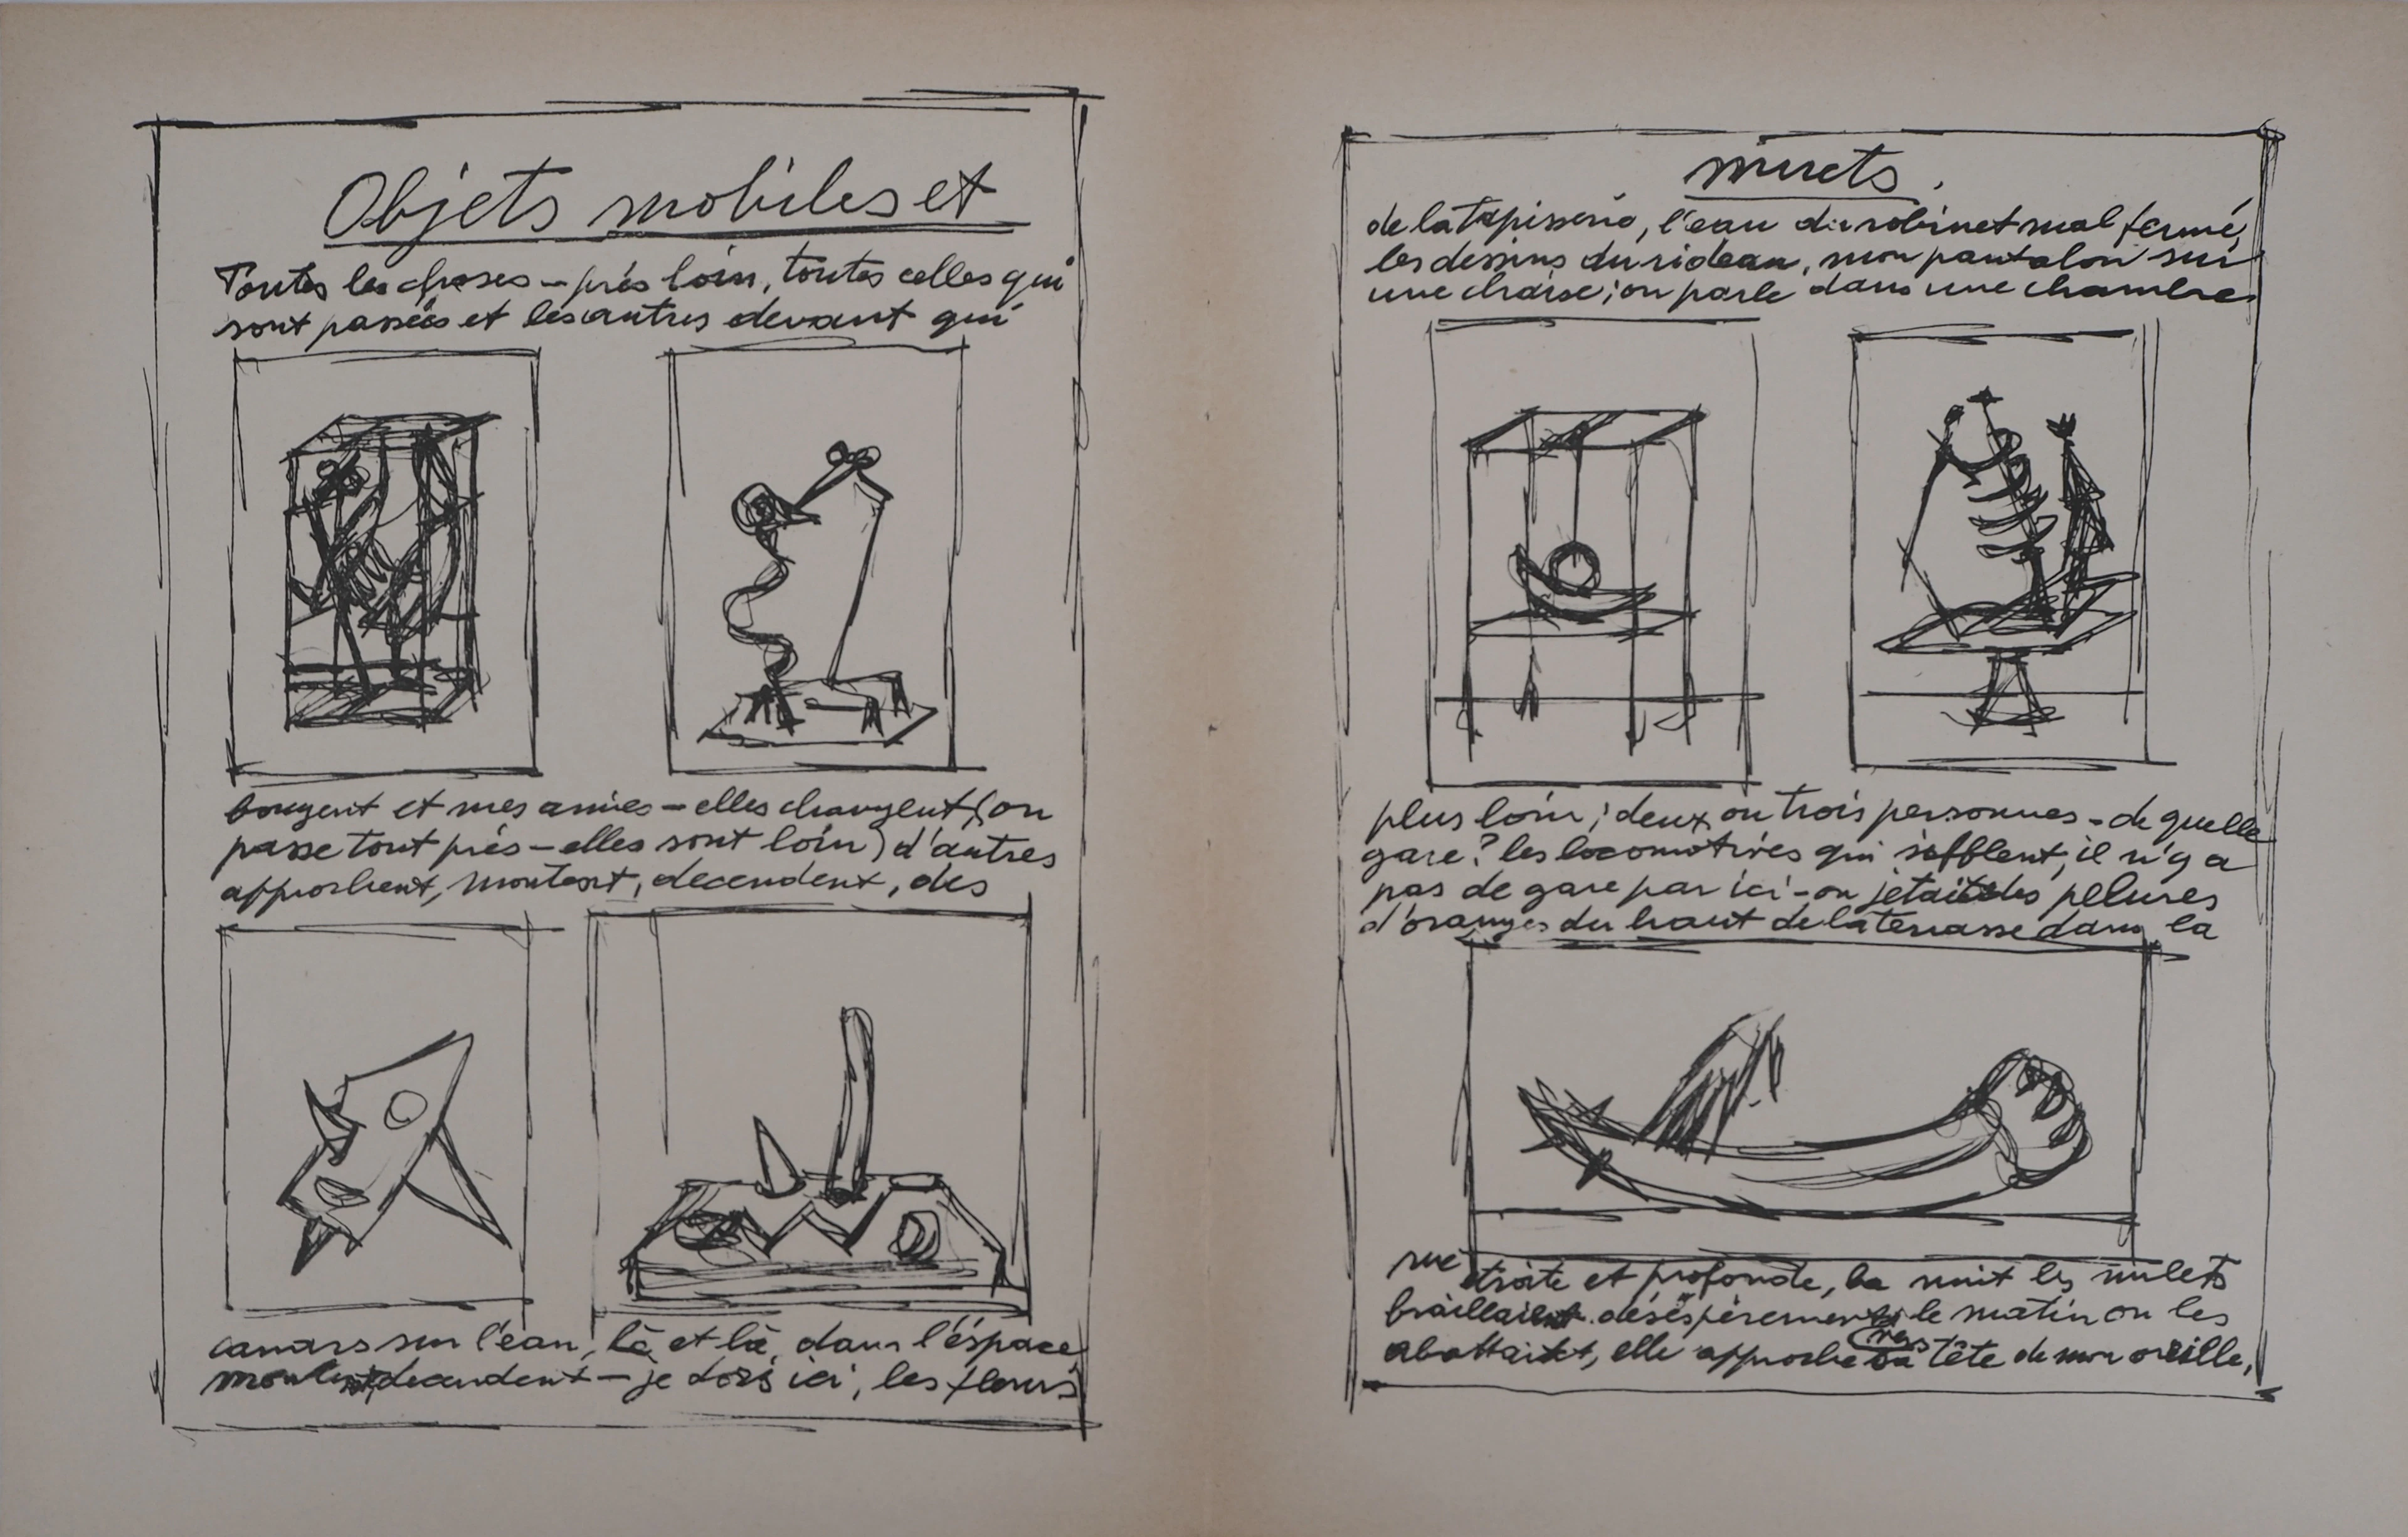 Objets mobiles et
Toutes les choses - près loin, toutes celles qui
sont passées et les autres devant qui
bougent et mes amies - elles changent (on
passe tout près - elles sont loin) d'autres
approchent, montent, decendent, des
canars sur l'eau, là et là, dans l'éspace
montent decendent - je dors ici, les fleurs
muets.
de la tapisserie, l'eau du robinet mal fermé,
les dessins du rideau, mon pantalon sur
une chaise; on parle dans une chambre
plus loin; deux ou trois personnes - de quelle
gare? les locomotives qui sifflent, il n'y a
pas de gare par ici - on jetait des pelures
d'oranges du haut de la terrasse dans la
rue étroite et profonde, la nuit les mulets
braillaient déséspérement le matin on les
abattait, elle approche sa tête de mon oreille,